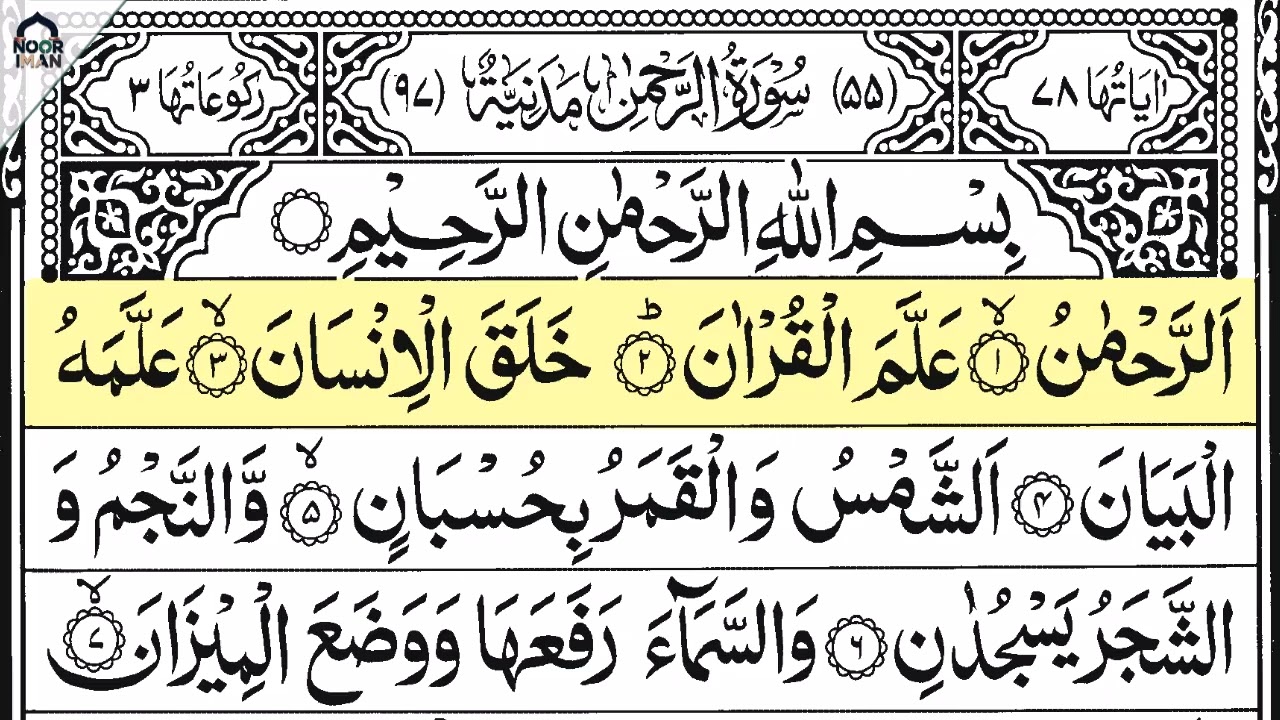 NOOR
IMAN
اٰيَاتُهَا ٧٨ (٥٥) سُوْرَةُ الرَّحْمٰنِ مَدَنِيَّةٌ (٩٧) رُكُوْعَاتُهَا ٣
بِسْمِ اللّٰهِ الرَّحْمٰنِ الرَّحِيْمِ ۝
اَلرَّحْمٰنُ ۙ‏﴿۱﴾ عَلَّمَ الْقُرْاٰنَ ؕ‏﴿۲﴾ خَلَقَ الْاِنْسَانَ ۙ‏﴿۳﴾ عَلَّمَهُ
الْبَيَانَ ﴿۴﴾ اَلشَّمْسُ وَالْقَمَرُ بِحُسْبَانٍ ۙ‏﴿۵﴾ وَّالنَّجْمُ وَ
الشَّجَرُ يَسْجُدٰنِ ﴿۶﴾ وَالسَّمَآءَ رَفَعَهَا وَوَضَعَ الْمِيْزَانَ ۙ‏﴿۷﴾